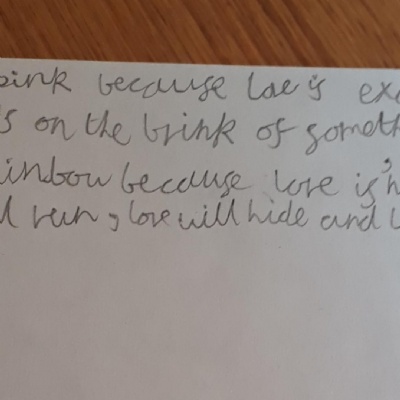 pink because love is exc
's on the brink of someth
inbow because love isn
l run, love will hide and